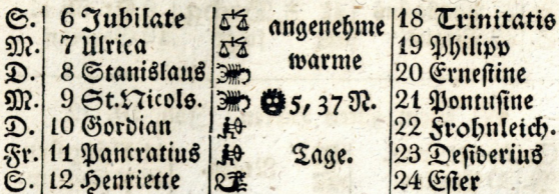 S. 6 Jubilate angenehme 18 Trinitatis
M. 7 Ulrica warme 19 Philipp
D. 8 Stanislaus 20 Ernestine
M. 9 St. Nicols. 5, 37 N. 21 Pontusine
D. 10 Gordian 22 Frohnleich.
Fr. 11 Pancratius Tage. 23 Desiderius
S. 12 Henriette 24 Ester